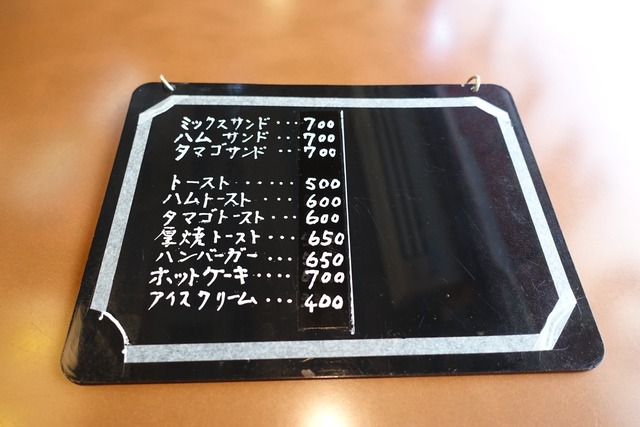 ミックスサンド・・・700
ハム サンド・・・700
タマゴサンド・・・700
トースト・・・・・・500
ハムトースト・・・・600
タマゴトースト・・・600
厚焼トースト・・・・650
ハンバーガー・・・・650
ホットケーキ・・・・700
アイスクリーム・・・400